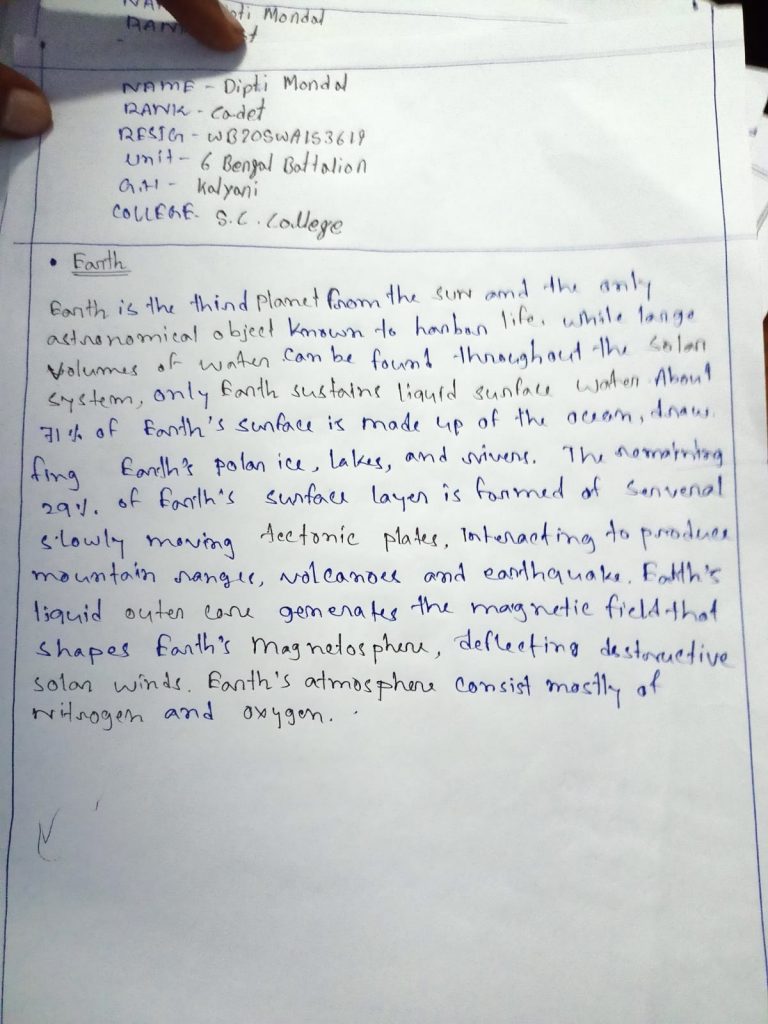 ti Mondal
RANK
NAME - Dipti Mondal
RANK - Cadet
RESIG - WB20SWA153619
Unit - 6 Bengal Battalion
G.H - Kalyani
COLLEGE - S.C. College
• Earth
Earth is the third planet from the sun and the only
astronomical object known to harbor life. while large
volumes of water can be found throughout the solar
system, only Earth sustains liquid surface water. About
71% of Earth's surface is made up of the ocean, draw
fing Earth's polar ice, lakes, and rivers. The remaining
29%. of Earth's surface layer is formed of serveral
slowly moving tectonic plates, interacting to produce
mountain ranges, volcanoes and earthquake. Earth's
liquid outer core generates the magnetic field that
shapes Earth's magnetosphere, deflecting destructive
solar winds. Earth's atmosphere consist mostly of
nitrogen and oxygen.